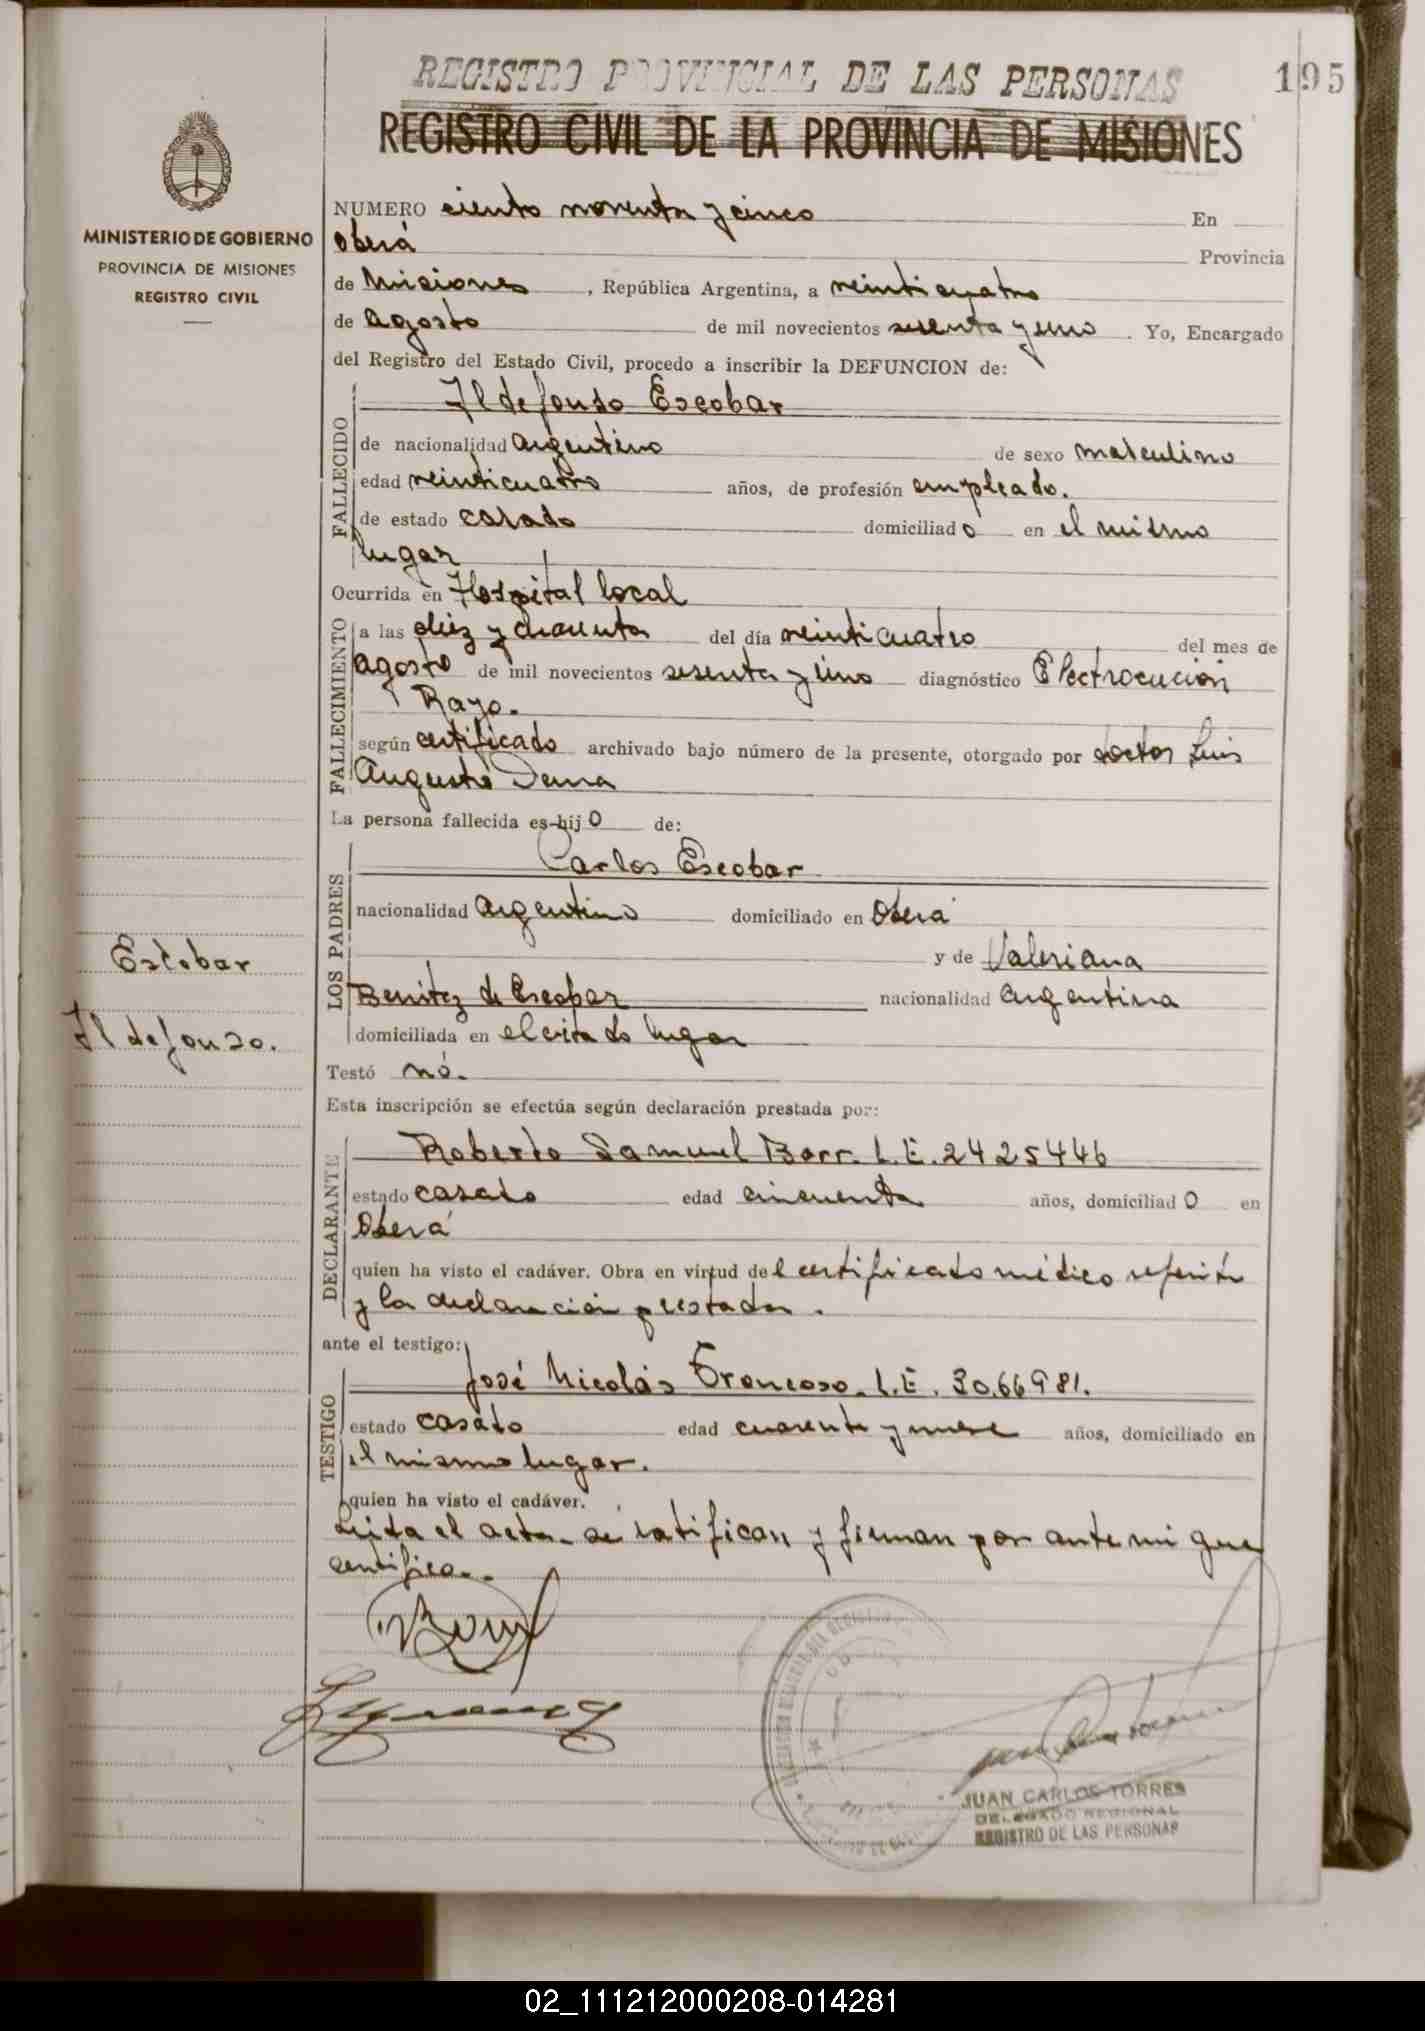 REGISTRO PROVINCIAL DE LAS PERSONAS
195
REGISTRO CIVIL DE LA PROVINCIA DE MISIONES
MINISTERIO DE GOBIERNO
PROVINCIA DE MISIONES
REGISTRO CIVIL
NUMERO ciento noventa y cinco En
Oberá Provincia
de Misiones , República Argentina, a veinticuatro
de Agosto de mil novecientos sesenta y uno . Yo, Encargado
del Registro del Estado Civil, procedo a inscribir la DEFUNCION de:
FALLECIDO
Ildefonso Escobar
de nacionalidad Argentino de sexo masculino
edad veinticuatro años, de profesión empleado.
de estado casado domiciliad o en el mismo
lugar
Ocurrida en Hospital local
FALLECIMIENTO
a las diez y cuarenta del día veinticuatro del mes de
Agosto de mil novecientos sesenta y uno diagnóstico Electrocución
Rayo.
según certificado archivado bajo número de la presente, otorgado por doctor Luis
Augusto
La persona fallecida es hij o de:
LOS PADRES
Carlos Escobar
nacionalidad Argentino domiciliado en Oberá
y de Valeriana
Benitez de Escobar nacionalidad Argentina
domiciliada en el citado lugar
Escobar
Ildefonso.
Testó nó.
Esta inscripción se efectúa según declaración prestada por:
DECLARANTE
Roberto Samuel Borr. L.E. 2425446
estado casado edad cincuenta años, domiciliad o en
Oberá
quien ha visto el cadáver. Obra en virtud del certificado médico referido
y la declaración prestada.
ante el testigo:
TESTIGO
José Nicolás Troncoso. L.E. 3066981.
estado casado edad cuarenta y nueve años, domiciliado en
el mismo lugar.
quien ha visto el cadáver.
Leída el acta se ratifican y firman por ante mi que
certifico.
JUAN CARLOS TORRES
DELEGADO REGIONAL
REGISTRO DE LAS PERSONAS
02_111212000208-014281